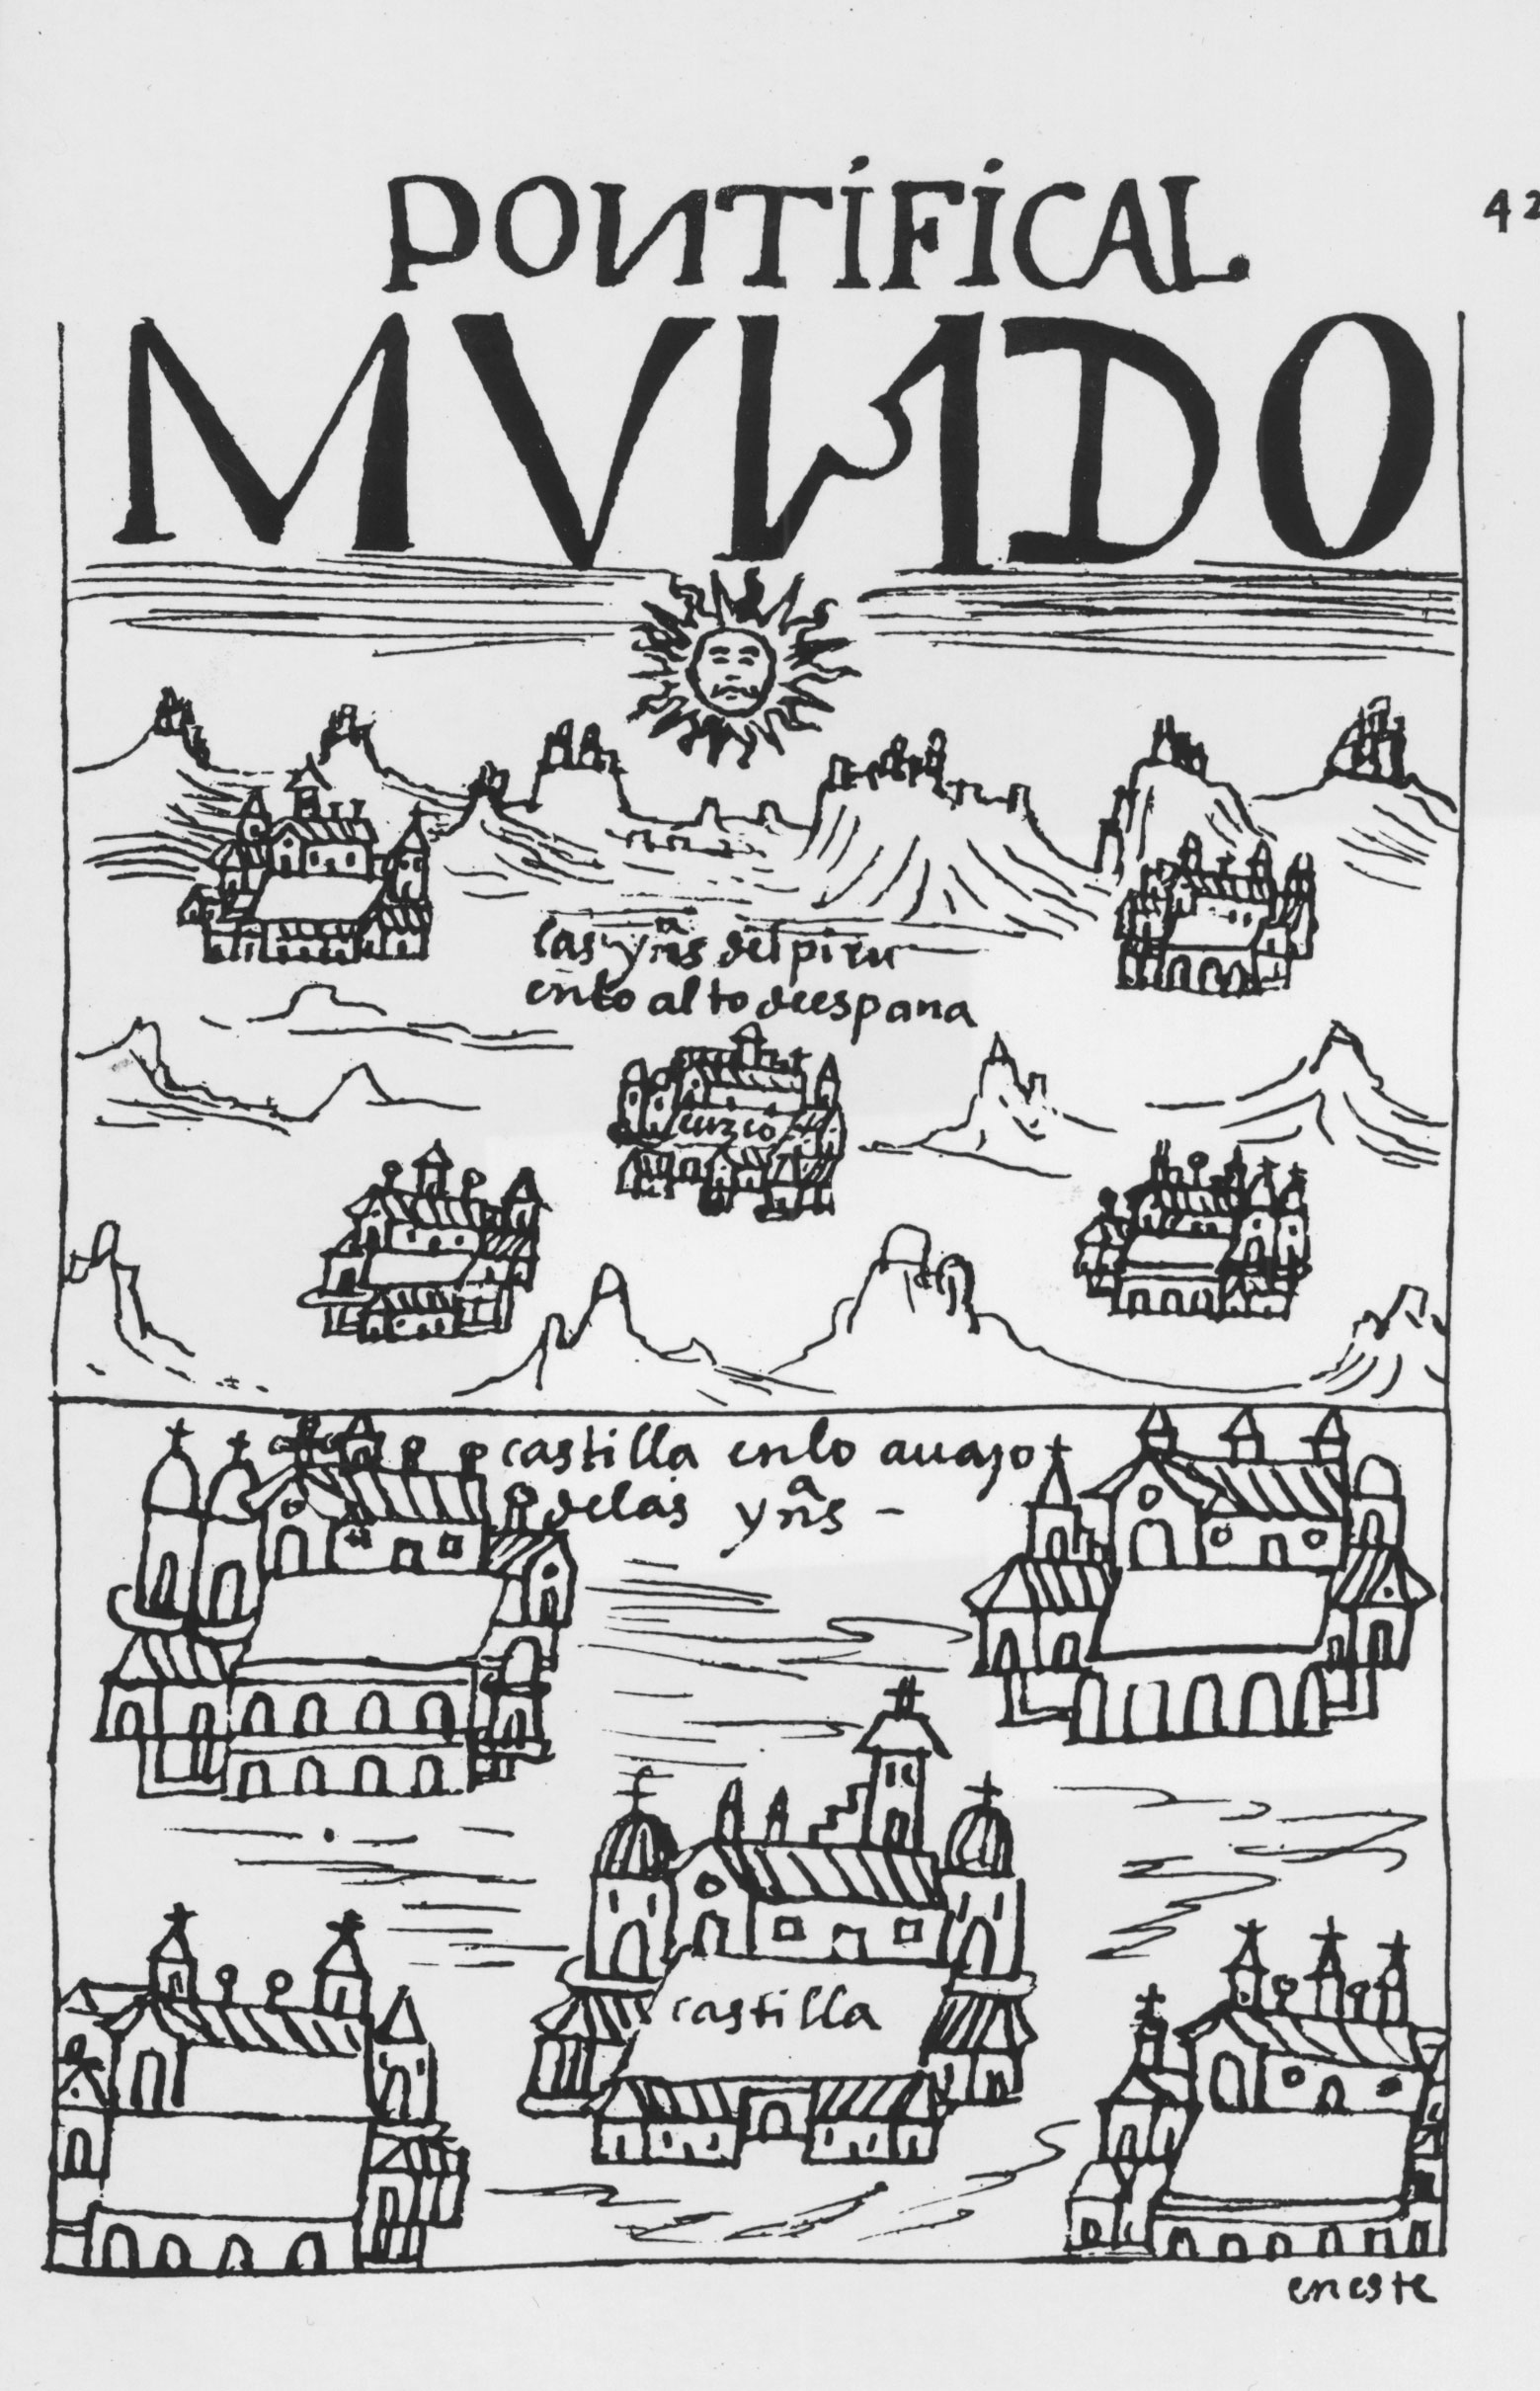 PONTIFICAL
42
MVNDO
las yñas del piru
enlo alto deespana
cuzco
castilla enlo auajo
delas yñas -
castilla
en este